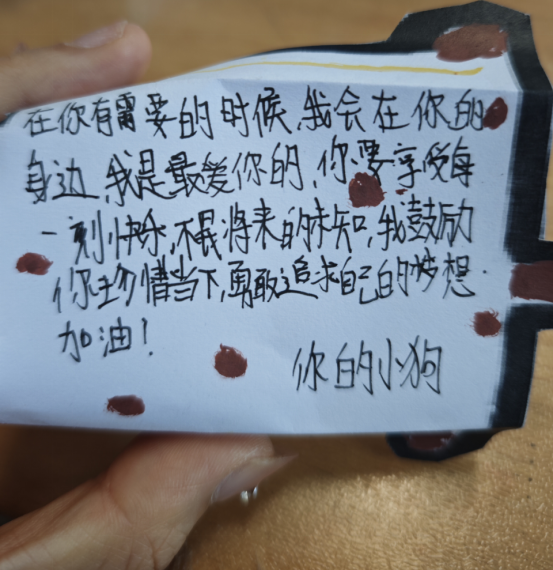 在你有需要的时候,我会在你的
身边,我是最爱你的,你要享受每
一刻快乐,不畏将来的未知,我鼓励
你珍惜当下,勇敢追求自己的梦想.
加油!
你的小狗